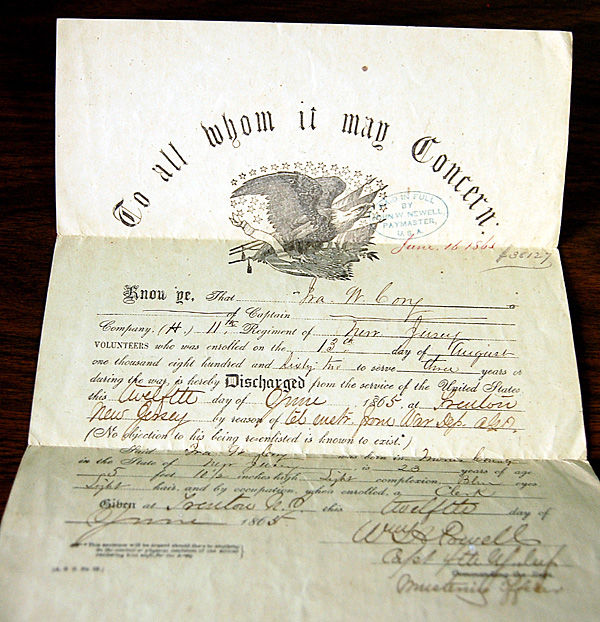 To all whom it may Concern:
PAID IN FULL
BY
JOHN W NEWELL
PAYMASTER,
U.S.A.
June 16 1865
Know ye, That Ira W. Cory a
of Captain
Company, (H,) 11th Regiment of New Jersey
VOLUNTEERS who was enrolled on the 13th day of August
one thousand eight hundred and sixty two to serve three years or
during the war, is hereby Discharged from the service of the United States,
this twelfth day of June 1865, at Trenton
New Jersey by reason of from War Dep.
(No objection to his being re-enlisted is known to exist.)
Said Ira W Cory was born in Morris County
in the State of New Jersey is 23 years of age
5 feet inches high, Light complexion, Blue eyes
Light hair, and by occupation, when enrolled, a Clerk
Given at Trenton N.J. this twelfth day of
June 1865
Capt
Commanding the
Mustering Officer